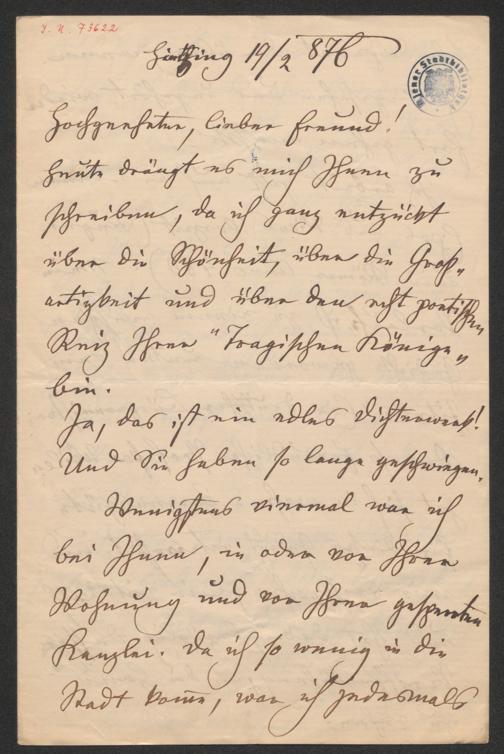 I. N. 73622
Hietzing 19/2 876
Wiener Stadtbibliothek
Hochgeehrter, lieber Freund!
Heute drängt es mich Ihnen zu
schreiben, da ich ganz entzückt
über die Schönheit, über die Groß-
artigkeit und über den echt poetischen
Reiz Ihrer "Tragischen Könige"
bin.
Ja, das ist ein edles Dichterwerk!
Und Sie haben so lange geschwiegen.
Wenigstens viermal war ich
bei Ihnen, in oder vor Ihrer
Wohnung und vor Ihrer gesperrten
Kanzlei. Da ich so wenig in die
Stadt kom̄e, war ich jedesmals